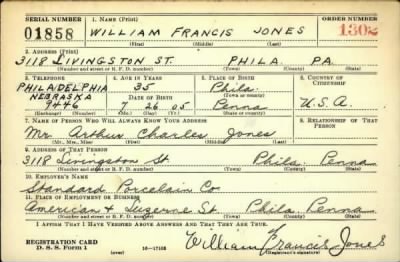 SERIAL NUMBER 1. NAME (Print) ORDER NUMBER
01858 WILLIAM FRANCIS JONES 1302
(First) (Middle) (Last)
2. ADDRESS (Print)
3118 LIVINGSTON ST. PHILA. PA.
(Number and street or R. F. D. number) (Town) (County) (State)
3. TELEPHONE 4. AGE IN YEARS 5. PLACE OF BIRTH 6. COUNTRY OF CITIZENSHIP
PHILADELPHIA 35 Phila.
NEBRASKA DATE OF BIRTH (Town or county)
9446 7 26 05 Penna U.S.A.
(Exchange) (Number) (Mo.) (Day) (Yr.) (State or country)
7. NAME OF PERSON WHO WILL ALWAYS KNOW YOUR ADDRESS 8. RELATIONSHIP OF THAT PERSON
Mr Arthur Charles Jones
(Mr., Mrs., Miss) (First) (Middle) (Last)
9. ADDRESS OF THAT PERSON
3118 Livingston St Phila Penna
(Number and street or R. F. D. number) (Town) (County) (State)
10. EMPLOYER'S NAME
Standard Porcelain Co
11. PLACE OF EMPLOYMENT OR BUSINESS
American & Luzerne St. Phila. Penna
(Number and street or R. F. D. number) (Town) (County) (State)
I AFFIRM THAT I HAVE VERIFIED ABOVE ANSWERS AND THAT THEY ARE TRUE.
REGISTRATION CARD
D. S. S. Form 1 (over) 16—17105 William Francis Jones
(Registrant's signature)